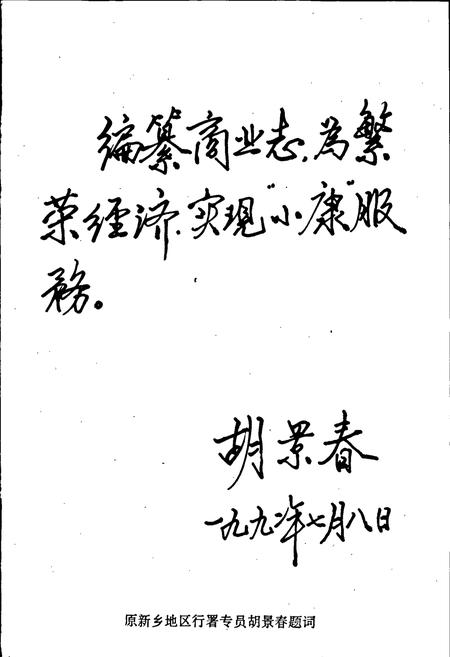 编纂商业志,為繁
荣经济,实現“小康”服
務。
胡景春
一九九〇年七月八日
原新乡地区行署专员胡景春题词